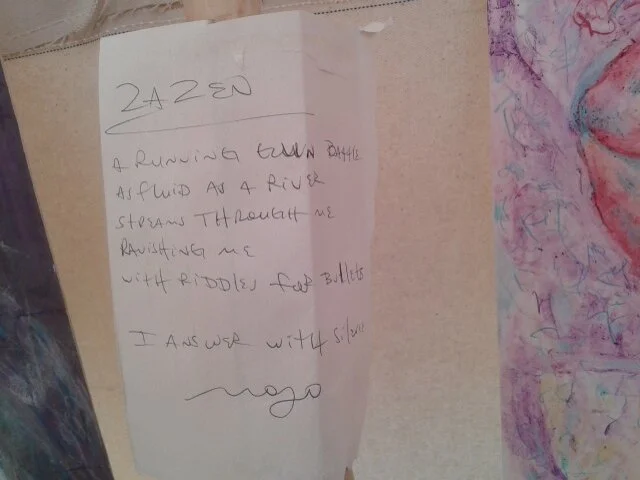 ZAZEN
A RUNNING GUN BATTLE
AS FLUID AS A RIVER
STREAMS THROUGH ME
RAVISHING ME
WITH RIDDLES FOR BULLETS
I ANSWER WITH SILENCE
MOJO